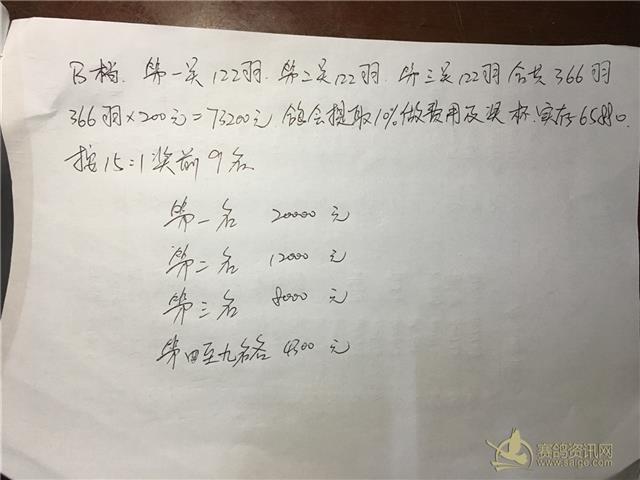 B档. 第一关122羽. 第二关122羽. 第三关122羽合共366羽
366羽×200元=73200元 鸽会提取10%做费用及奖杯.实存65880.
按15:1奖前9名
第一名 20000 元
第二名 12000 元
第三名 8000 元
第四至九名各 4300 元
赛鸽资讯网
www.saige.com